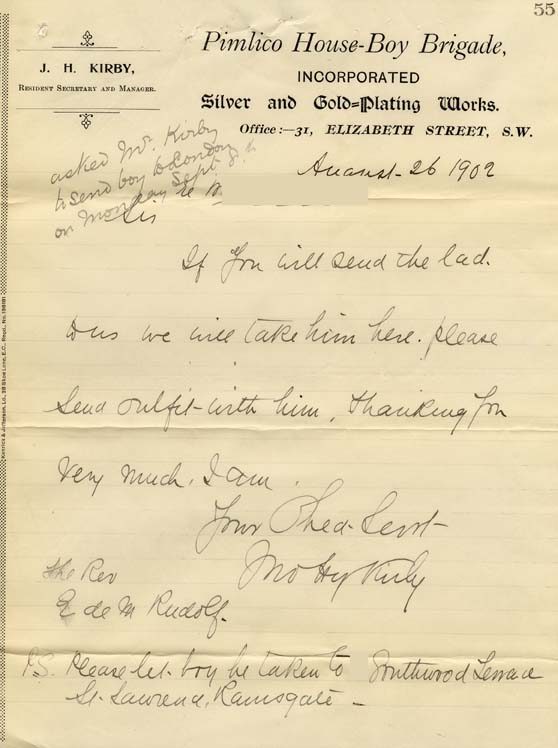 55
Pimlico House-Boy Brigade,
INCORPORATED
Silver and Gold=Plating Works.
Office:—31, ELIZABETH STREET, S.W.
J. H. KIRBY,
RESIDENT SECRETARY AND MANAGER.
asked Mr. Kirby
to send boy to London
on Monday Sept 8th
August 26 1902
re W
Sir
If you will send the lad.
to us we will take him here. please
send outfit with him, thanking you
very much. I am.
Your Obed. Servt
Jno Hy Kirby
The Rev
E de M Rudolf.
P.S. Please let boy be taken to Southwood Terrace
St. Lawrence, Ramsgate —